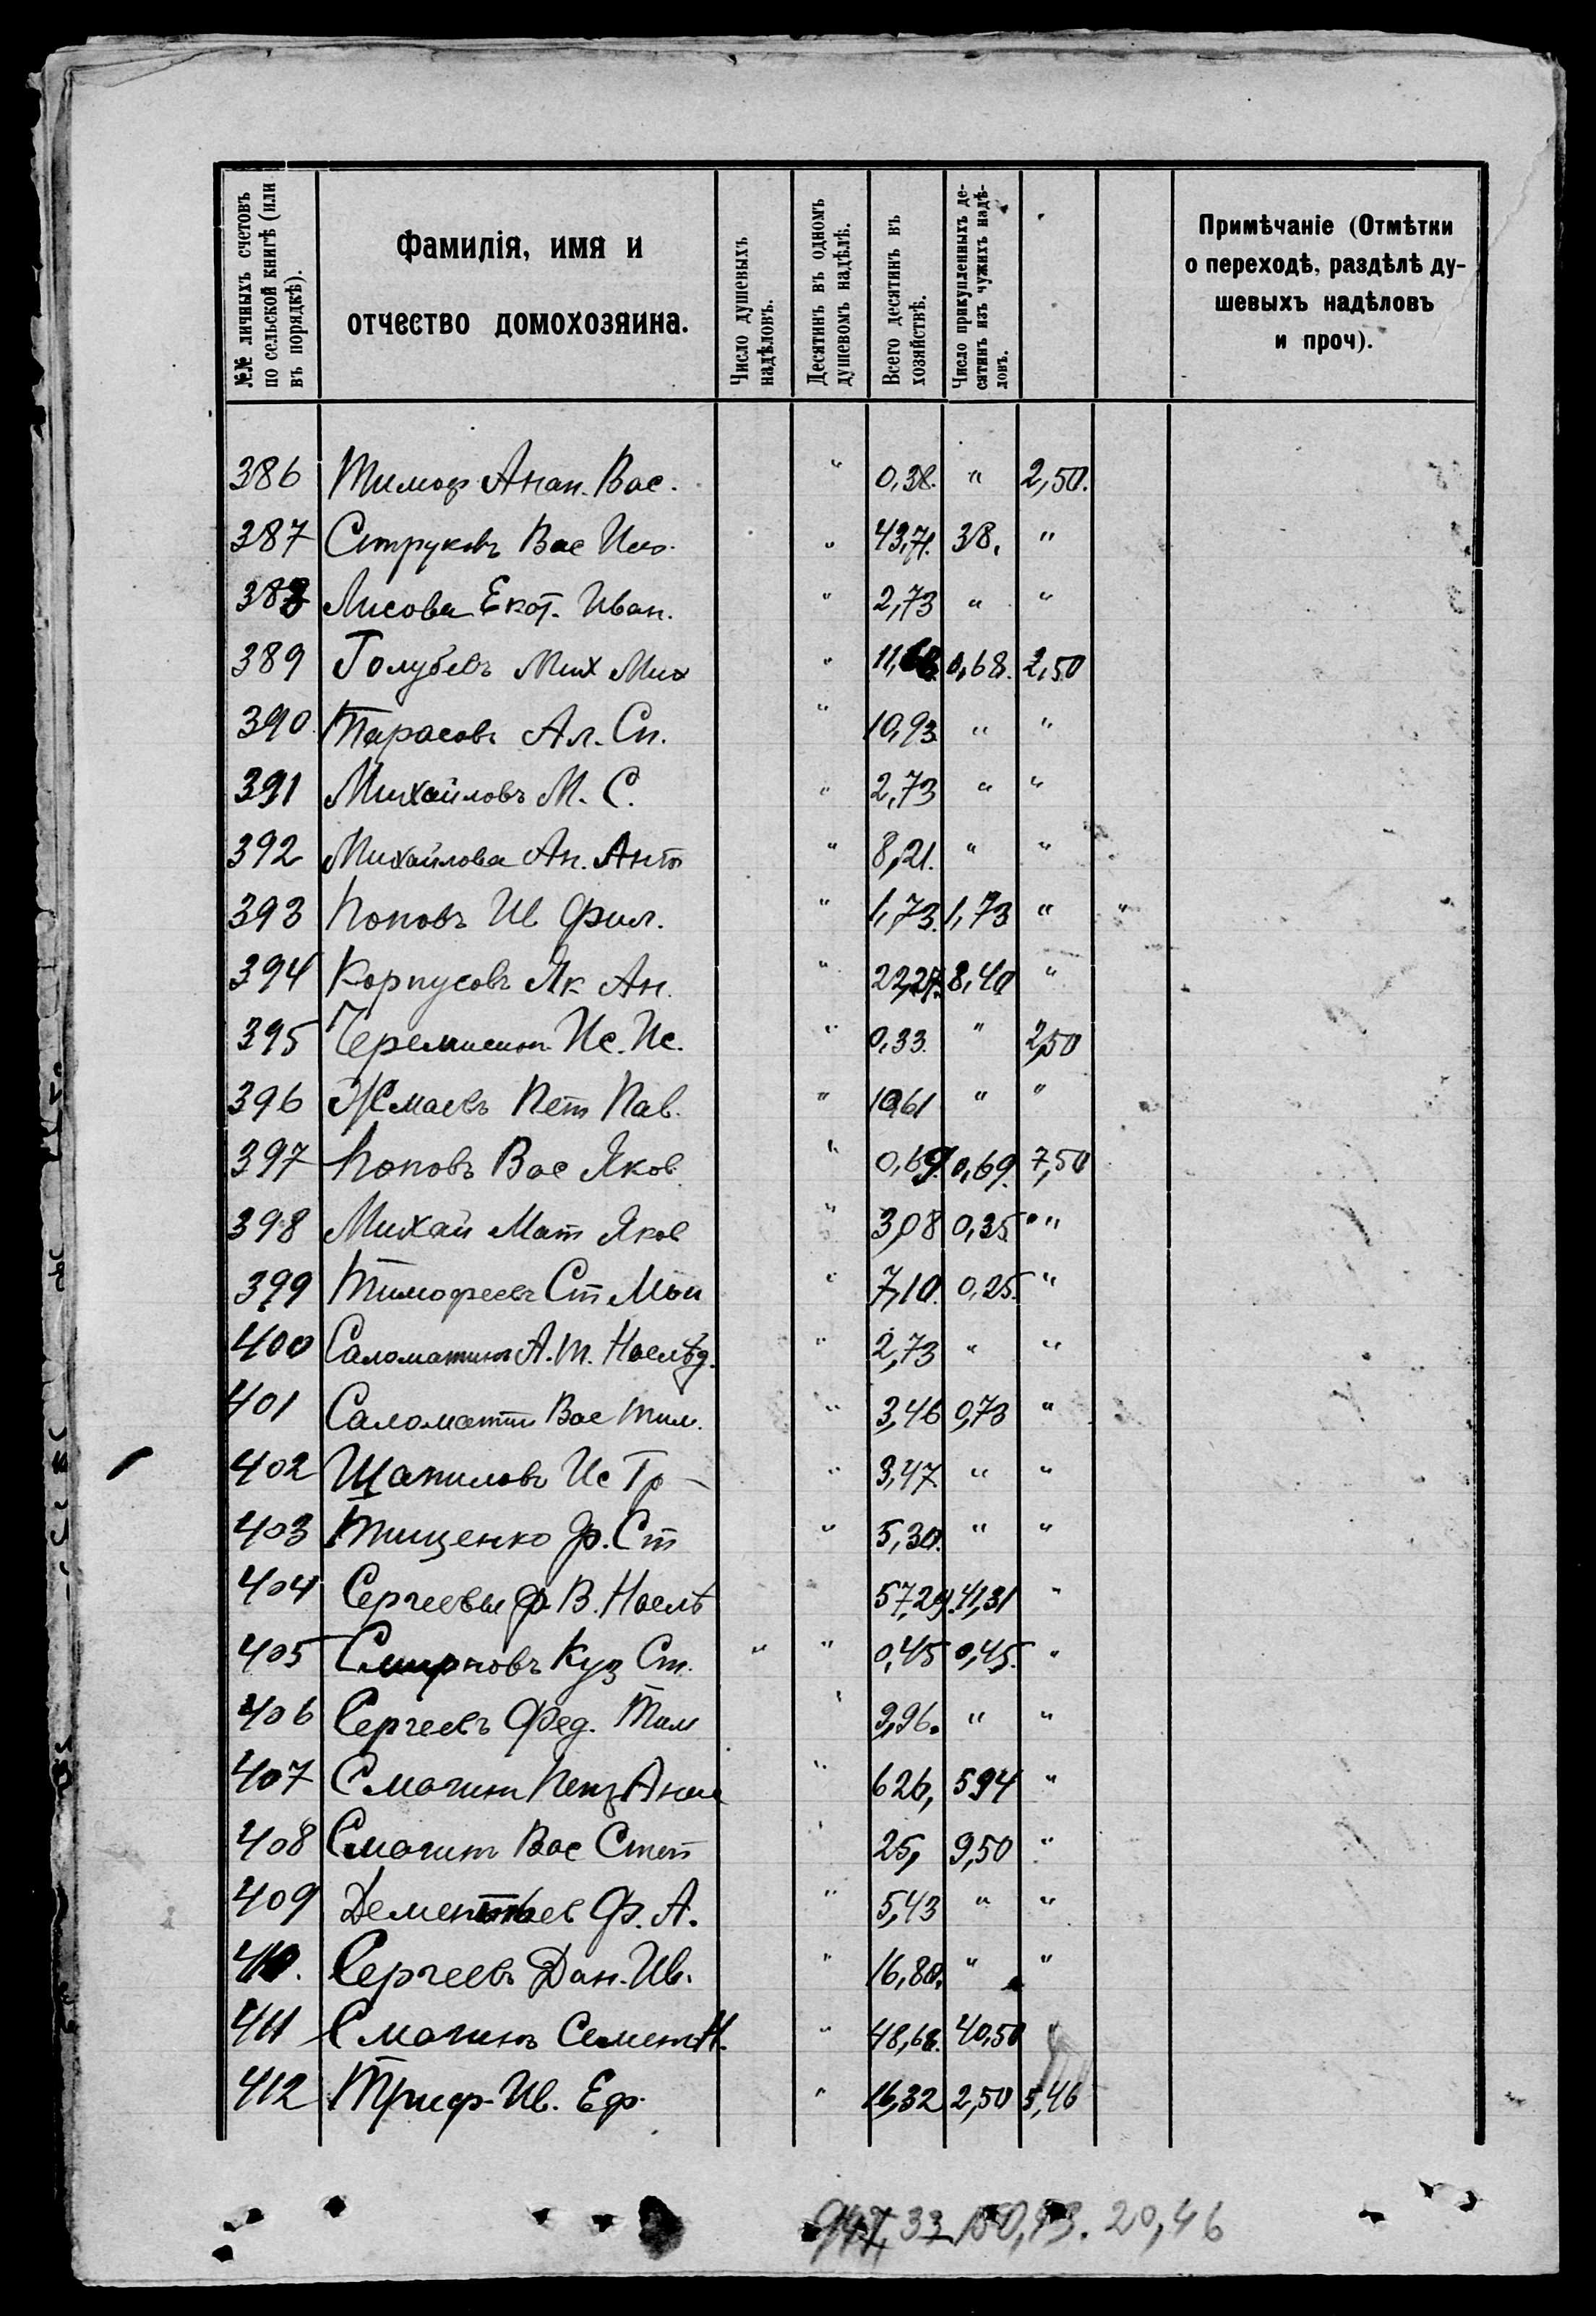 №№ личныхъ счетовъ по сельской книгѣ (или въ порядкѣ).
Фамилія, имя и отчество домохозяина.
Число душевыхъ надѣловъ.
Десятинъ въ одномъ душевомъ надѣлѣ.
Всего десятинъ въ хозяйствѣ.
Число прикупленныхъ десятинъ изъ чужихъ надѣловъ.
Примѣчаніе (Отмѣтки
о переходѣ, раздѣлѣ ду-
шевыхъ надѣловъ
и проч).
386 Тимоф Анан. Вас. " 0,38. " 2,50.
387 Струковъ Вас " 43,71. 38. "
388 Лисова Екат. Иван. " 2,73 " "
389 Голубевъ Мих Мих " 11,68 0,68. 2,50
390 Тарасовъ Ал. Сп. " 10,93 " "
391 Михайловъ М. С. " 2,73 " "
392 Михайлова Ан. Ант " 8,21. " "
393 Поповъ Ив Фил. " 1,73. 1,73 " "
394 Корпусовъ Як Ан. " 22,27. 8,40 "
395 Черемисин Ис. Ис. " 0,33. " 2,50
396 Жмаевъ Пет Пав. " 10,61 " "
397 Поповъ Вас Яков " 0,69. 0,69. 7,50
398 Михай Мат Яков " 3,08 0,35 "
399 Тимофеевъ Ст Мои " 7,10. 0,25. "
400 Саломатин А. Т. Наслѣд. " 2,73 " "
401 Саломатин Вас Тим. " 3,46 0,73 "
402 Шапиловъ Ис Гр " 3,47 " "
403 Тищенко Гр. Ст " 5,30. " "
404 Сергеевы Ф. В. Наслѣ 57,29. 41,31 "
405 Смирновъ Куз Ст. " " 0,45 0,45. "
406 Сергеевъ Фед. Тим " 9,96. " "
407 Смагин " 626, 594 "
408 Смагин Вас Степ " 25, 9,50 "
409 Дементьев Ф. А. " 5,43 " "
410. Сергеевъ Дан. Ив. " 16,80. " "
411 Смагинъ Семен Н. " 48,68. 40,50 "
412 Триф. Ив. Еф. " 16,32 2,50 5,46
947,33 20,46